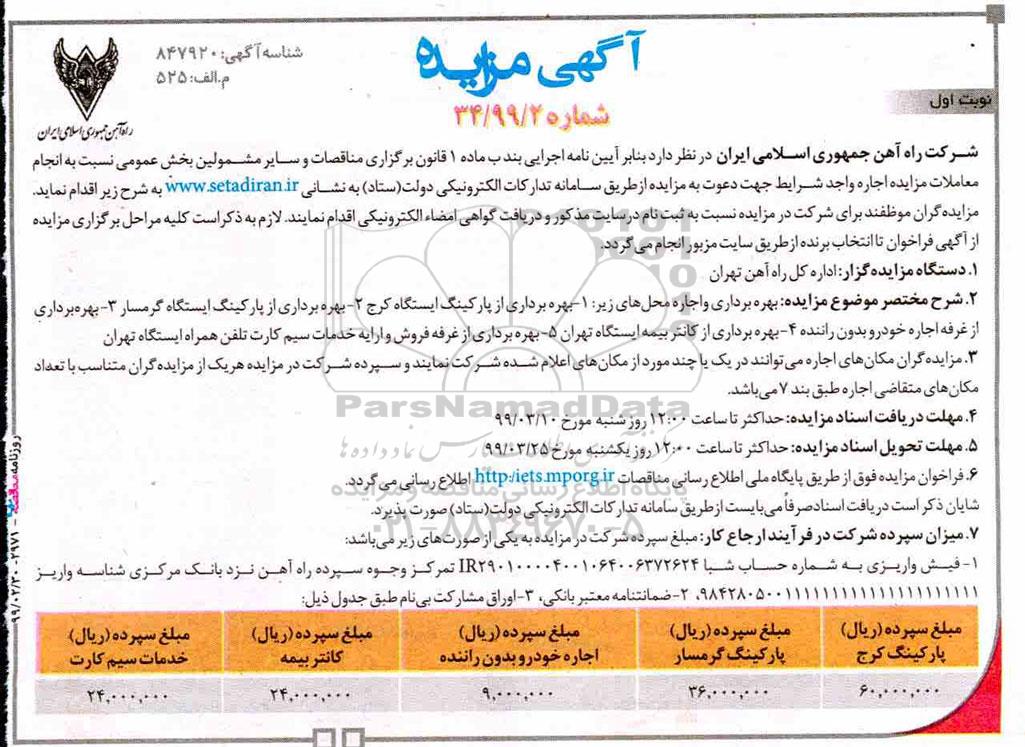 شناسه آگهی: ۸۴۷۹۲۰
م.الف: ۵۲۵
آگهی مزایده
شماره ۳۴/۹۹/۲
نوبت اول
راه‌آهن جمهوری اسلامی ایران
شرکت راه آهن جمهوری اسلامی ایران در نظر دارد بنابر آیین نامه اجرایی بند ب ماده ۱ قانون برگزاری مناقصات و سایر مشمولین بخش عمومی نسبت به انجام
معاملات مزایده اجاره واجد شرایط جهت دعوت به مزایده از طریق سامانه تدارکات الکترونیکی دولت(ستاد) به نشانی www.setadiran.ir به شرح زیر اقدام نماید.
مزایده گران موظفند برای شرکت در مزایده نسبت به ثبت نام در سایت مذکور و دریافت گواهی امضاء الکترونیکی اقدام نمایند. لازم به ذکر است کلیه مراحل برگزاری مزایده
از آگهی فراخوان تا انتخاب برنده از طریق سایت مزبور انجام می گردد.
۱. دستگاه مزایده گزار: اداره کل راه آهن تهران
۲. شرح مختصر موضوع مزایده: بهره برداری واجاره محل‌های زیر: ۱-بهره برداری از پارکینگ ایستگاه کرج ۲-بهره برداری از پارکینگ ایستگاه گرمسار ۳-بهره برداری
از غرفه اجاره خودرو بدون راننده ۴-بهره برداری از کانتر بیمه ایستگاه تهران ۵-بهره برداری از غرفه فروش و ارایه خدمات سیم کارت تلفن همراه ایستگاه تهران
۳. مزایده گران مکان‌های اجاره می توانند در یک یا چند مورد از مکان‌های اعلام شده شرکت نمایند و سپرده شرکت در مزایده هریک از مزایده گران متناسب با تعداد
مکان‌های متقاضی اجاره طبق بند ۷ می‌باشد.
ParsNamadData
۴. مهلت دریافت اسناد مزایده: حداکثر تا ساعت ۱۲:۰۰ روز شنبه مورخ ۹۹/۰۳/۱۰
۵. مهلت تحویل اسناد مزایده: حداکثر تا ساعت ۱۲:۰۰ روز یکشنبه مورخ ۹۹/۰۳/۲۵
۶. فراخوان مزایده فوق از طریق پایگاه ملی اطلاع رسانی مناقصات http:/iets.mporg.ir اطلاع رسانی می گردد.
پایگاه اطلاع رسانی مناقصه و مزایده
شایان ذکر است دریافت اسناد صرفاً می‌بایست از طریق سامانه تدارکات الکترونیکی دولت(ستاد) صورت پذیرد.
۰۲۱-۸۸۳۴۹۶۷۰-۵
۷. میزان سپرده شرکت در فرآیند ارجاع کار: مبلغ سپرده شرکت در مزایده به یکی از صورت‌های زیر می‌باشد:
۱- فیش واریزی به شماره حساب شبا IR۲۹۰۱۰۰۰۰۴۰۰۱۰۶۴۰۰۶۳۷۲۶۲۴ تمرکز وجوه سپرده راه آهن نزد بانک مرکزی شناسه واریز
۹۸۴۲۸۰۵۰۰۱۱۱۱۱۱۱۱۱۱۱۱۱۱۱۱۱۱۱۱۱، ۲-ضمانتنامه معتبر بانکی، ۳-اوراق مشارکت بی‌نام طبق جدول ذیل:
مبلغ سپرده (ریال) پارکینگ کرج
مبلغ سپرده (ریال) پارکینگ گرمسار
مبلغ سپرده (ریال) اجاره خودرو بدون راننده
مبلغ سپرده (ریال) کانتر بیمه
مبلغ سپرده (ریال) خدمات سیم کارت
۶۰,۰۰۰,۰۰۰
۳۶,۰۰۰,۰۰۰
۹,۰۰۰,۰۰۰
۲۴,۰۰۰,۰۰۰
۲۴,۰۰۰,۰۰۰
روزنامه مناقصه - ۲۹۷۱ - ۹۹/۰۲/۳۰